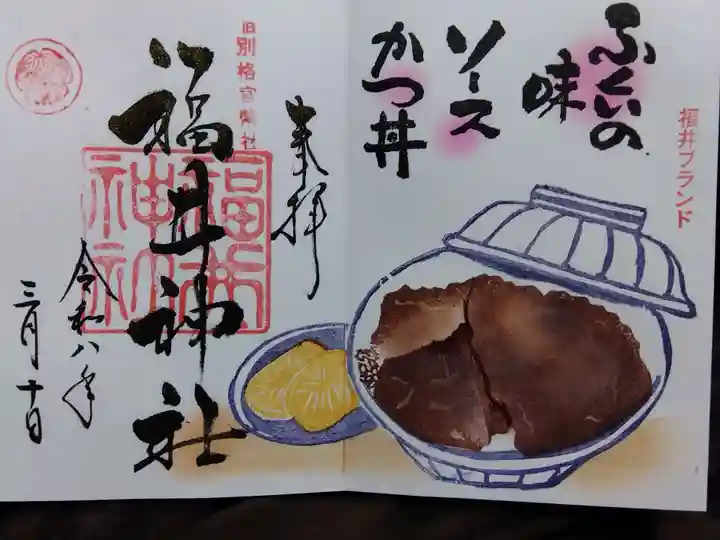 福井ブランド
ふくいの
味
ソース
かつ丼
奉拝
旧別格官幣社
福井神社
福井
神社
令和八年
三月十日